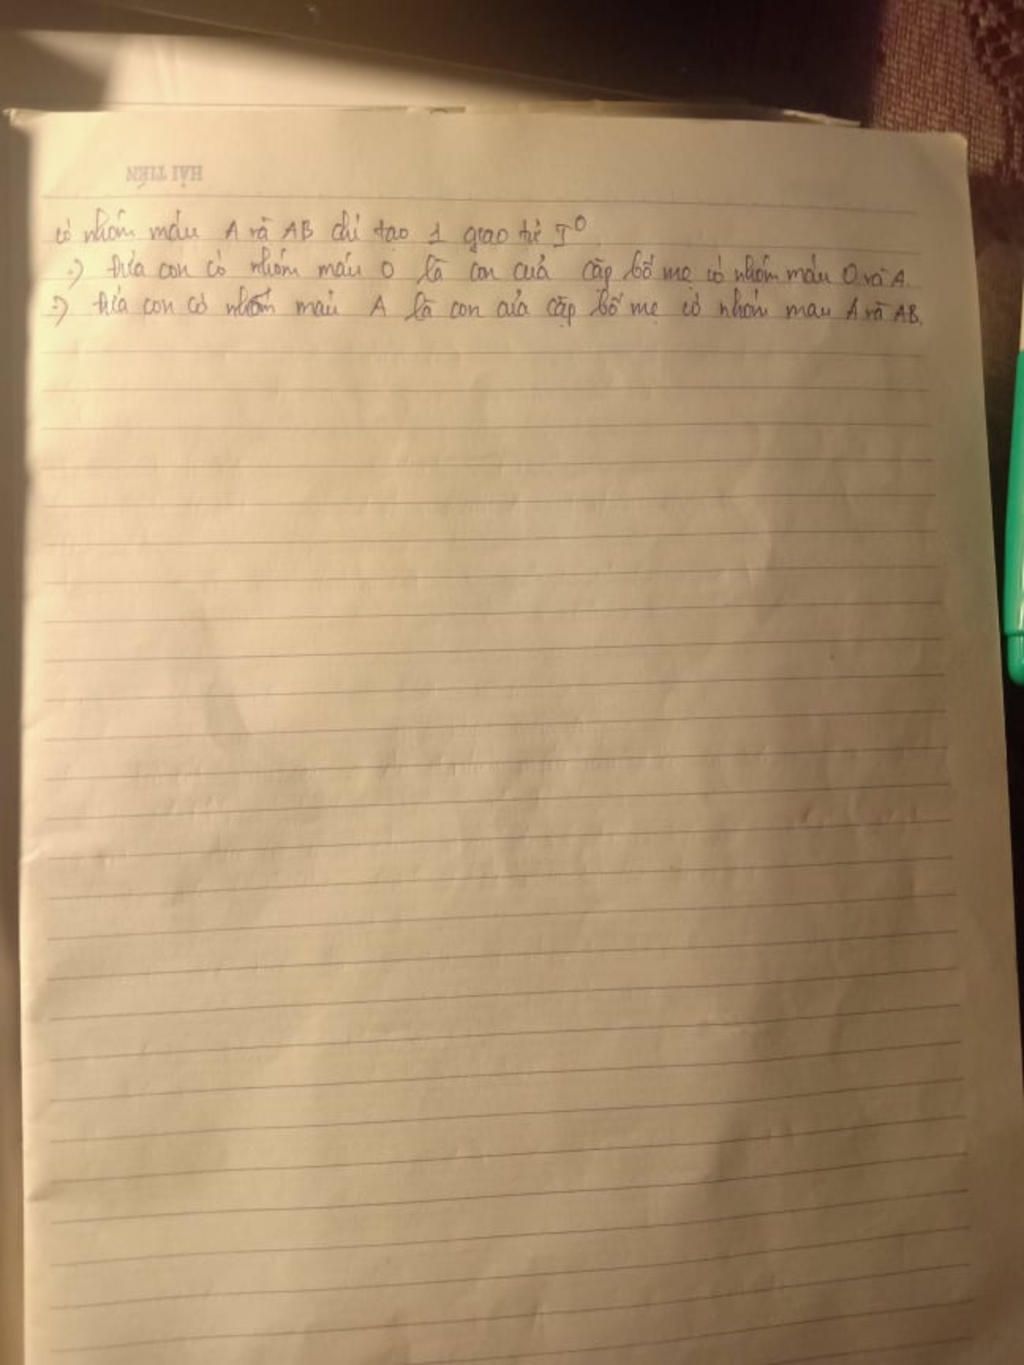 HẢI TIẾN
có nhóm máu A và AB chỉ tạo 1 giao tử I⁰
=) đứa con có nhóm máu O là con của cặp bố mẹ có nhóm máu O và A.
=) đứa con có nhóm máu A là con của cặp bố mẹ có nhóm máu A và AB.